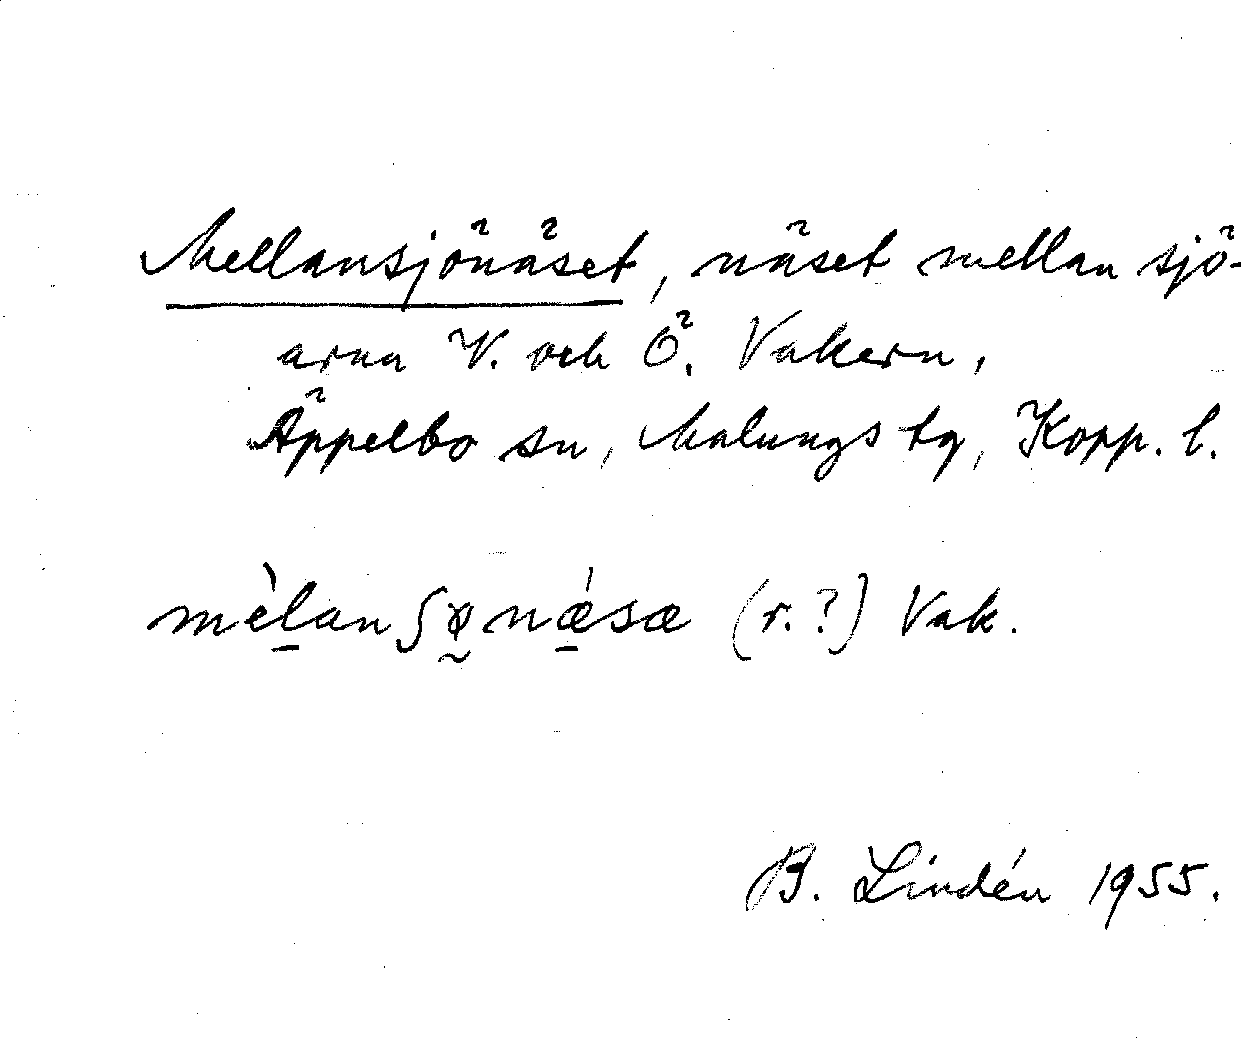 Mellansjönäset, näset mellan sjö-
arna V. och Ö. Vakern,
Äppelbo sn, Malungs tg, Kopp. l.
mèla̱nʃø̰nǽ̱sæ (r.?) Vak.
B. Lindén 1955.